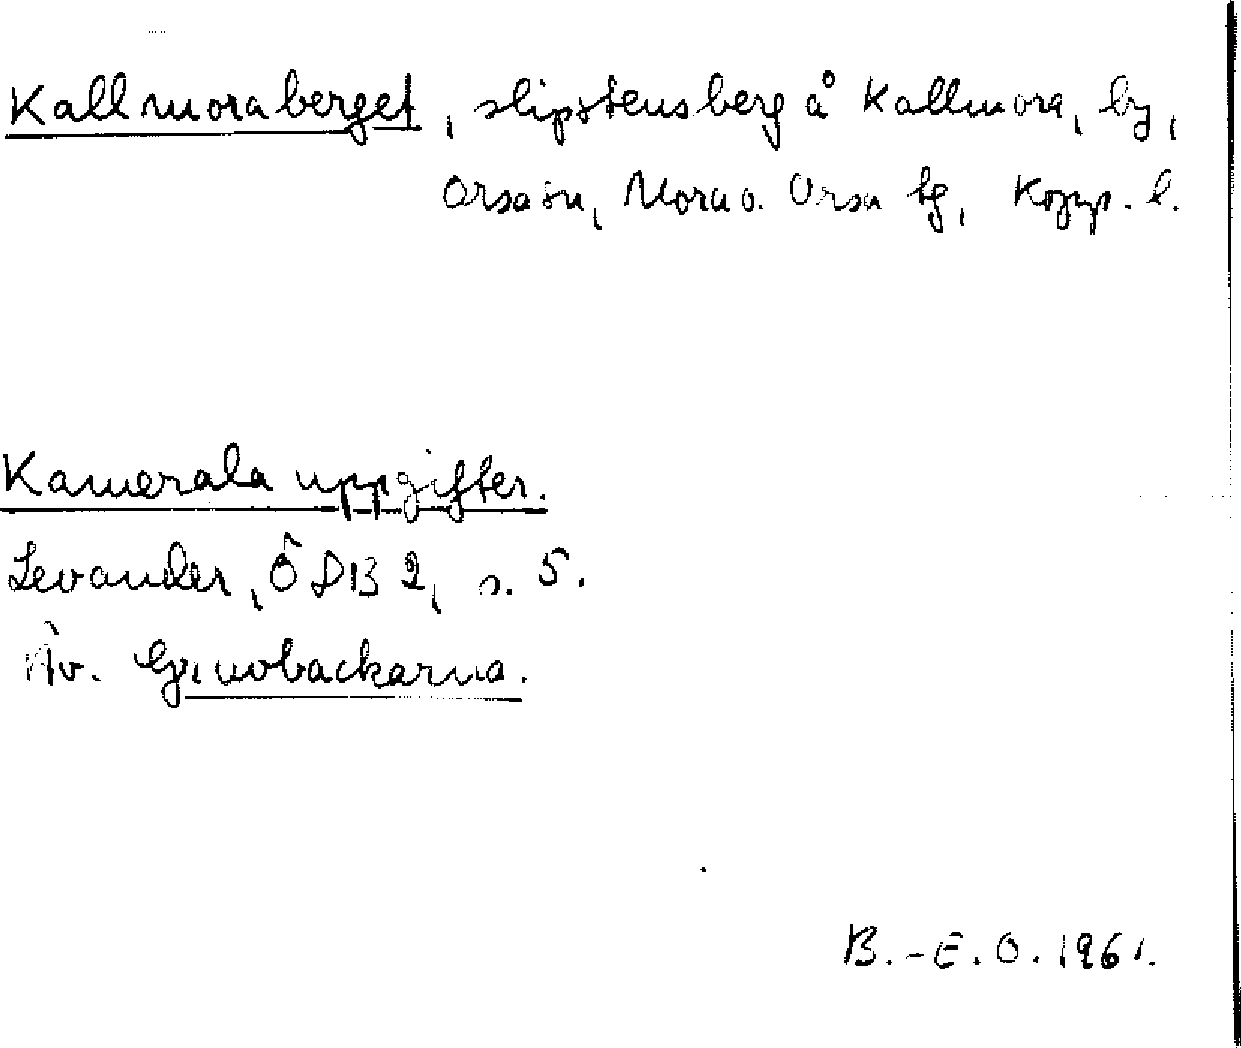 Kallmoraberget, slipstensberg å Kallmora, by,
Orsa sn, Mora o. Orsa tg, Kopp. l.
Kamerala uppgifter.
Levander, ÖDB 2, s. 5.
Äv.
B.-E. O. 1961.